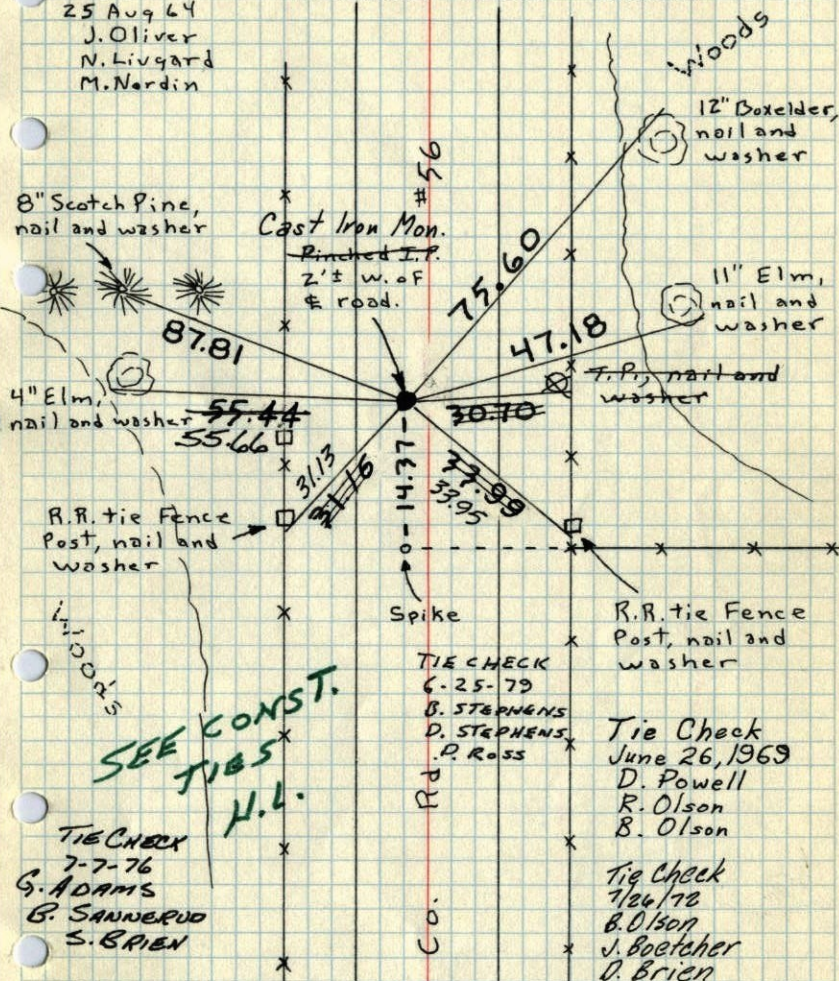 25 Aug 64
J. Oliver
N. Livgard
M. Nordin
Woods
12" Boxelder,
nail and
washer
8" Scotch Pine,
nail and washer
#56
Cast Iron Mon.
Pinched I.P.
2'± W. of
℄ road.
75.60
11" Elm,
nail and
washer
87.81
47.18
T.P., nail and
washer
4" Elm,
nail and washer
55.44
55.66
30.70
31.13
31.16
14.37
33.99
33.95
R.R. tie Fence
Post, nail and
washer
Spike
R.R. tie Fence
Post, nail and
washer
Woods
TIE CHECK
6-25-79
B. STEPHENS
D. STEPHENS
D. ROSS
SEE CONST.
TIES
H.L.
Tie Check
June 26, 1969
D. Powell
R. Olson
B. Olson
Co. Rd
TIE CHECK
7-7-76
G. ADAMS
B. SANNERUD
S. BRIEN
Tie Check
7/26/72
B. Olson
J. Boetcher
D. Brien